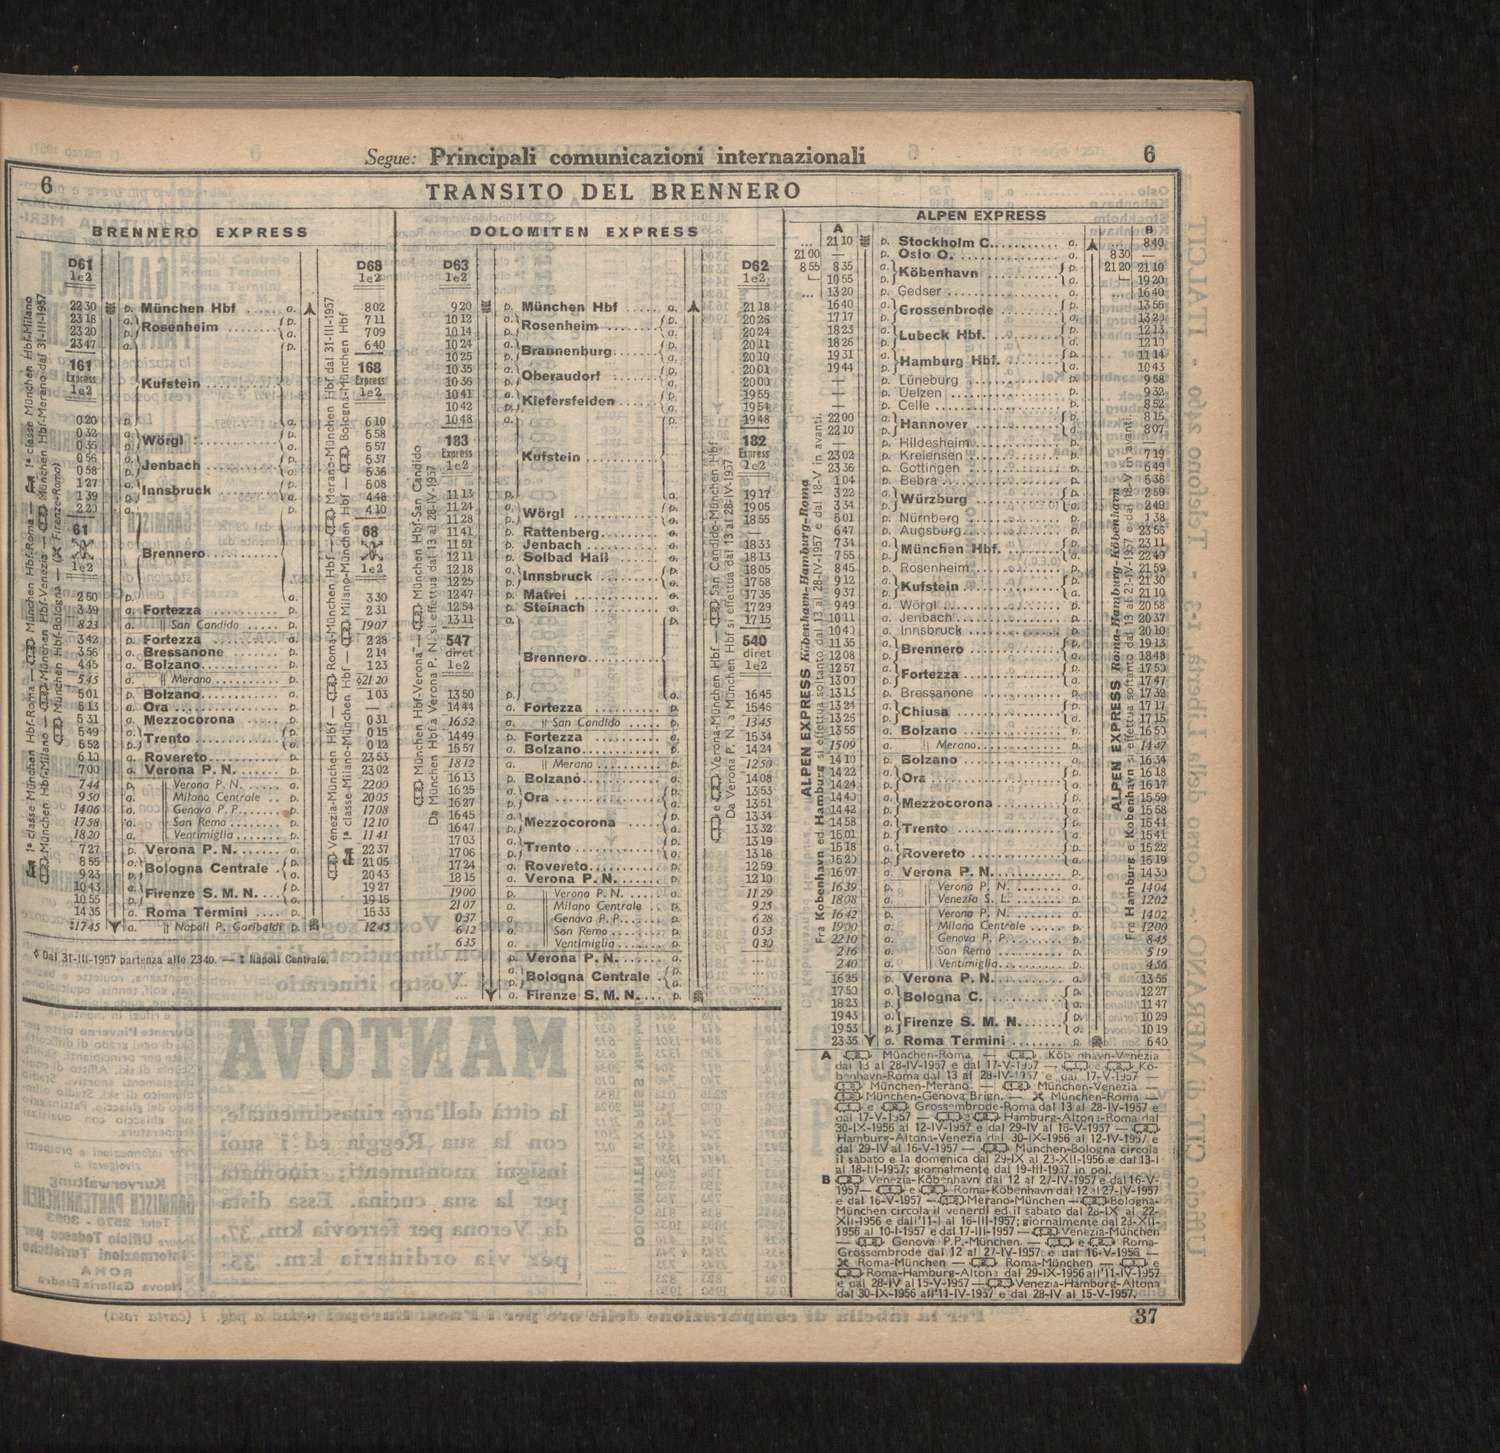 Segue: Principali comunicazioni internazionali 6
6 TRANSITO DEL BRENNERO
BRENNERO EXPRESS
D61 1e2
D68 1e2
22 30 p. München Hbf a. 8 02
23 18 a. Rosenheim p. 7 11
23 20 p. a. 7 09
23 47 a. p. 6 40
161 Express 1e2
Kufstein
168 Express 1e2
0 20 p. a. 6 10
0 32 a. Wörgl p. 5 58
0 35 p. a. 5 57
0 56 a. Jenbach p. 5 37
0 58 p. a. 5 36
1 27 a. Innsbruck p. 5 08
1 39 p. a. 4 48
2 20 a. p. 4 10
61 1e2
Brennero
68 1e2
2 50 p. a. 3 30
3 39 a. Fortezza p. 2 31
8 23 a. San Candido p. 19 07
3 42 p. Fortezza a. 2 28
3 56 a. Bressanone p. 2 14
4 45 a. Bolzano p. 1 23
5 45 a. Merano p. ◊21 20
5 01 p. Bolzano a. 1 03
5 13 a. Ora p. —
5 31 a. Mezzocorona p. 0 31
5 49 a. Trento p. 0 15
5 52 p. a. 0 12
6 13 a. Rovereto p. 23 53
7 00 a. Verona P. N. p. 23 02
7 44 p. Verona P. N. a. 22 00
9 50 a. Milano Centrale p. 20 05
14 06 a. Genova P. P. p. 17 08
17 58 a. San Remo p. 12 10
18 20 a. Ventimiglia p. 11 41
7 27 p. Verona P. N. a. 22 37
8 55 a. Bologna Centrale p. 21 05
9 23 p. a. 20 43
10 43 a. Firenze S. M. N. p. 19 27
10 55 p. a. 19 15
14 35 a. Roma Termini p. 15 33
‡17 45 a. Napoli P. Garibaldi p. 12 45
◊ Dal 31-III-1957 partenza alle 23 40. — ‡ Napoli Centrale.
DOLOMITEN EXPRESS
D63 1e2
D62 1e2
9 20 p. München Hbf a. 21 18
10 12 a. Rosenheim p. 20 26
10 14 p. a. 20 24
10 24 a. Brannenburg p. 20 11
10 25 p. a. 20 10
10 35 a. Oberaudorf p. 20 01
10 36 p. a. 20 00
10 41 a. Kiefersfelden p. 19 55
10 42 p. a. 19 54
10 48 a. p. 19 48
183 Express 1e2
Kufstein
182 Express 1e2
11 13 p. a. 19 17
11 24 a. Wörgl p. 19 05
11 28 p. a. 18 55
11 41 p. Rattenberg a. —
11 51 p. Jenbach a. 18 33
12 11 p. Solbad Hall a. 18 13
12 18 a. Innsbruck p. 18 05
12 25 p. a. 17 58
12 47 p. Matrei a. 17 35
12 54 p. Steinach a. 17 29
13 11 a. p. 17 15
547 diret 1e2
Brennero
540 diret 1e2
13 50 p. a. 16 45
14 44 a. Fortezza p. 15 46
16 52 a. San Candido p. 13 45
14 49 p. Fortezza a. 15 34
15 57 a. Bolzano p. 14 24
18 12 a. Merano p. 12 50
16 13 p. Bolzano a. 14 08
16 25 a. Ora p. 13 53
16 27 p. a. 13 51
16 45 a. Mezzocorona p. 13 34
16 47 p. a. 13 32
17 03 a. Trento p. 13 19
17 06 p. a. 13 16
17 24 a. Rovereto p. 12 59
18 15 a. Verona P. N. p. 12 10
19 00 p. Verona P. N. a. 11 29
21 07 a. Milano Centrale p. 9 25
0 37 a. Genova P. P. p. 6 28
6 12 a. San Remo p. 0 53
6 35 a. Ventimiglia p. 0 30
... p. Verona P. N. a. ...
... a. Bologna Centrale p. ...
... a. Firenze S. M. N. p. ...
ALPEN EXPRESS
A
B
... 21 10 p. Stockholm C. a. ... 8 40
21 00 — p. Oslo O. a. 8 30 —
8 55 8 35 a. Köbenhavn p. 21 20 21 10
10 55 p. a. 19 20
... 13 20 p. Gedser a. ... 16 40
16 40 a. Grossenbrode p. 13 56
17 17 p. a. 13 20
18 23 a. Lubeck Hbf. p. 12 13
18 26 p. a. 12 10
19 31 a. Hamburg Hbf. p. 11 14
19 44 p. a. 10 43
— p. Lüneburg a. 9 58
— p. Uelzen a. 9 32
— p. Celle a. 8 52
22 00 a. Hannover p. 8 15
22 10 p. a. 8 07
— p. Hildesheim a. —
23 02 p. Kreiensen a. 7 19
23 36 p. Gottingen a. 6 49
1 04 p. Bebra a. 5 36
3 22 a. Würzburg p. 2 59
3 34 p. a. 2 49
5 01 p. Nürnberg a. 1 38
6 47 p. Augsburg a. 23 55
7 34 a. München Hbf. p. 23 11
7 55 p. a. 22 49
8 45 p. Rosenheim a. 21 59
9 12 a. Kufstein p. 21 30
9 37 p. a. 21 10
9 49 a. Wörgl p. 20 58
10 11 a. Jenbach p. 20 37
10 40 a. Innsbruck p. 20 10
11 35 a. Brennero p. 19 13
12 08 p. a. 18 48
12 57 a. Fortezza p. 17 50
13 00 p. a. 17 47
13 13 p. Bressanone a. 17 32
13 24 a. Chiusa p. 17 17
13 25 p. a. 17 15
13 55 a. Bolzano p. 16 50
15 09 a. Merano p. 14 47
14 10 p. Bolzano a. 16 34
14 22 a. Ora p. 16 18
14 24 p. a. 16 17
14 40 a. Mezzocorona p. 15 59
14 42 p. a. 15 58
14 58 a. Trento p. 15 44
15 01 p. a. 15 41
15 18 a. Rovereto p. 15 22
15 20 p. a. 15 19
16 07 a. Verona P. N. p. 14 30
16 39 p. Verona P. N. a. 14 04
18 08 a. Venezia S. L. p. 12 02
16 42 p. Verona P. N. a. 14 02
19 00 a. Milano Centrale p. 12 00
22 10 a. Genova P. P. p. 8 45
2 16 a. San Remo p. 5 19
2 40 a. Ventimiglia p. 4 56
16 25 p. Verona P. N. a. 13 55
17 50 a. Bologna C. p. 12 27
18 23 p. a. 11 47
19 43 a. Firenze S. M. N. p. 10 29
19 53 p. a. 10 19
23 35 a. Roma Termini p. 6 40
ALPEN EXPRESS Köbenhavn-Hamburg-Roma
Fra Kobenhavn ed Hamburg si effettua soltanto dal 13 al 28-IV-1957 e dal 18-V in avanti.
ALPEN EXPRESS Roma-Hamburg-Köbenhavn
A München-Roma — Köbenhavn-Venezia
dal 13 al 28-IV-1957 e dal 17-V-1957 — e Kö-
benhavn-Roma dal 13 al 28-IV-1957 e dal 17-V-1957 —
München-Merano. — München-Venezia —
München-Genova Brign. — München-Roma —
e Grossembrode-Roma dal 13 al 28-IV-1957 e
dal 17-V-1957 — e Hamburg-Altona-Roma dal
30-IX-1956 al 12-IV-1957 e dal 29-IV al 16-V-1957 —
Hamburg-Altona-Venezia dal 30-IX-1956 al 12-IV-1957 e
dal 29-IV al 16-V-1957 — München-Bologna circola
il sabato e la domenica dal 29-IX al 23-XII-1956 e dal 13-I
al 18-III-1957; giornalmente dal 19-III-1957 in poi.
B Venezia-Köbenhavn dal 12 al 27-IV-1957 e dal 16-V-
1957 — e Roma-Köbenhavn dal 12 al 27-IV-1957
e dal 16-V-1957 — Merano-München — Bologna-
München circola il venerdì ed il sabato dal 28-IX al 22-
XII-1956 e dall'11-I al 16-III-1957; giornalmente dal 23-XII-
1956 al 10-I-1957 e dal 17-III-1957 — Venezia-München
— Genova P.P.-München. — e Roma-
Grossembrode dal 12 al 27-IV-1957 e dal 16-V-1956 —
Roma-München — Roma-München — e
Roma-Hamburg-Altona dal 29-IX-1956 all'11-IV-1957
e dal 28-IV al 15-V-1957 — Venezia-Hamburg-Altona
dal 30-IX-1956 all'11-IV-1957 e dal 28-IV al 15-V-1957.
37